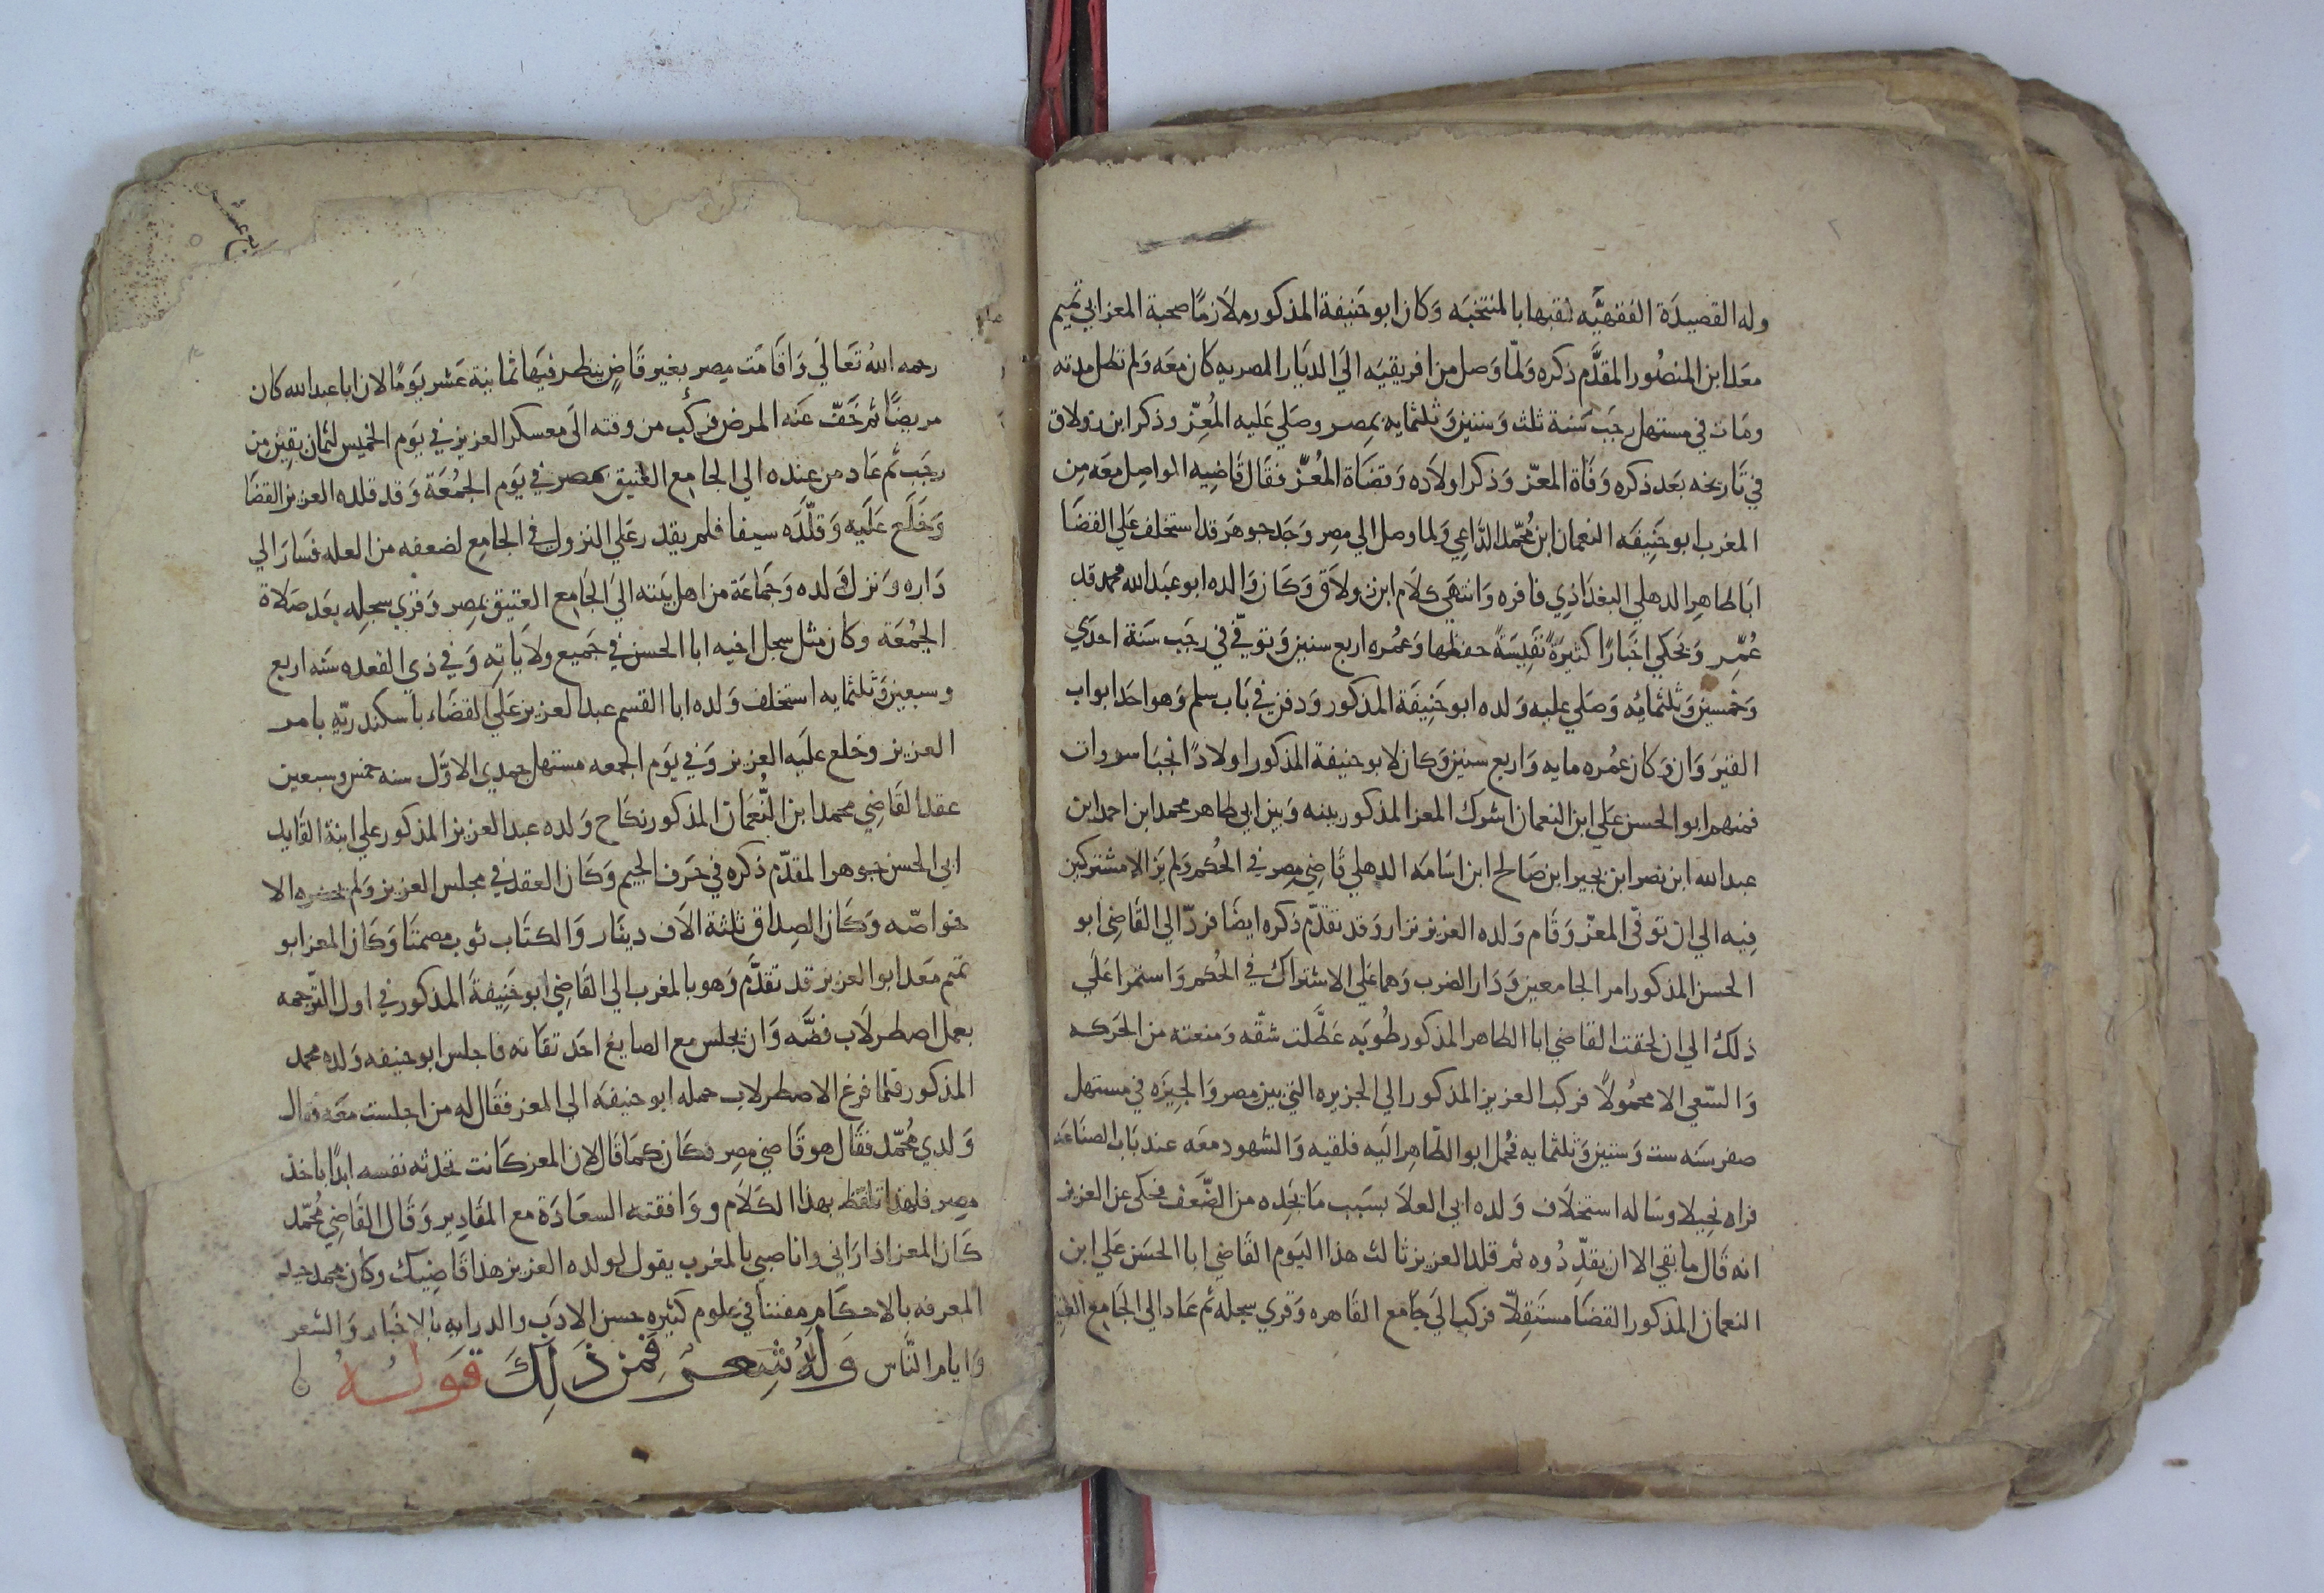 وله القصيدة الفقهيَّه لقبها بالمنتخبه وكان ابو حنيفة المذكور ملازمًا صحبة المعز ابي تميم
معد ابن المنصُور المقدَّم ذكره ولمّا وصل من افريقيَه الي الديار المصريه كان معَه ولم تطل مدته
ومات في مستهل رجب سَنة ثلث وستين وثلثمايه بمِصر وصَلي عَليه المُعِزّ وذكر ابن زولاق
في تاريخه بعَد ذكره وفاة المعّز وَذكر اولاده وَقضاة المُعزّ فقال قَاضِيه الواصِل معَه مِن
المغرب ابو حَنِيفَه النعمان ابن مُحمّد الدَّاعِي وَلما وصل الي مصِر وَجَد جوهَر قد استخلف عَلي القضَا
ابَا طاهِر الدهلي البغدَاذِي فاقره وَانتهَي كلام ابن زولاَق وَكَان وَالده ابو عَبد الله محمد قد
عُمِّر وَيحَكي اخبَارًا كثيرةً نفِيسَةً حفظها وَعمُره اربع سنين وَتوفّي في رجَب سَنة احدَي
وَخمسِين وَثلثمائه وَصَلي عليه وَلده ابو حَنِيفَة المذكور وَدفن في بَاب سلم وَهو احَد ابواب
القيرَوَان وَكان عمُره مايه وَاربع سنين وَكان لابو حنيفة المذكور اولادًا نجبَا سروات
فمنهم ابو الحسن عَلي ابن النعمان اشرَك المعز المذكور بينه وَبين ابي طاهر محمد ابن احمد ابن
عبد الله ابن نصر ابن بجير ابن صَالح ابن اسَامَه الدهلي قَاضِي مِصر في الحُكم وَلم يزالا مشتركين
فِيه الي ان توفّي المعزّ وَقَام وَلده العزيز نزار وَقد تقدّم ذكره ايضًا فردّ الي القَاضِي ابو
الحسن المذكور امر الجامعين وَدَار الضرب وَهما عَلي الاشتراك في الحُكم وَاستمرا عَلَي
ذلك الي ان لحقت القاضي ابا الطاهر المذكور رطُوبَه عَطَّلت شقّه وَمنعته من الحَركه
وَالسّعي الا محمُولاً فركب العزيز المذكور الي الجزيره التي بين مصر وَالجيزَه في مستهل
صفر سَنه ست وَستين وَثلثمايه فحُمل ابو الطّاهِر اليَه فلقيه وَالشهود معَه عند بَاب الصنَاعَه
فراه نحِيلا وسَاله استخلاف وَلده ابي العلاَ بسَبب مَا يجَده من الضّعَف فحكى عن العزيز
انه قَال ما بقي الا ان يقدِّدُوه ثم قلد العزيز ثالث هذا اليَوم القَاضي ابا الحسَن عَلي ابن
النعمان المذكور القضَا مستَقِلاًّ فركب الي جَامع القَاهره وَقري سجله ثم عَاد الي الجَامِع العتيق
رحمه اللهُ تعَالَي وَاقَامَت مِصر بغير قَاضٍ ينظر فيَها ثمانية عَشر يَومًا لان ابا عبد الله كان
مريضًا ثم خَفّ عَنه المرض فركَب من وقته الى معسكر العزيز في يَوم الخميس لثمان بقِين مِن
رجَب ثم عَاد من عنده الي الجامِع العتيق بمصر في يَوم الجمُعَة وَقد قلده العزيز القضَا
وَخلَع عَليَه وَقلَّدَه سيفا فلم يقدر عَلي النزول في الجامِع لضعفه من العله فسَار الي
دَاره وَنزل وَلده وَجمَاعَة من اهل بيَته اليَ الجَامع العتِيق بمِصر وَقري سجِله بعَد صَلاة
الجمُعَة وكان مثل سجل اخيه ابا الحسن في جَميع ولاَيَاتِه وَفي ذي القعده سَنه اربع
وسبعين وَثلثمايه استخلف وَلده ابا القسم عبد العزيز عَلي القضَاء باسكندريّهِ بامر
العزيز وخلع عليَه العزيز وَفي يَوم الجمعه مستهل جمدي الاوّل سنه خمس وسبعين
عقد القَاضِي محمد ابن النُّعمَان المذكور نكَاح وَلده عبد العزيز المذكور علي ابنة القَايد
ابي الحسن جوهر المقدّم ذكره في حَرف الجيم وَكَان العقد في مجلس العزيز وَلم يحضره الا
خواصّه وَكَان الصِداق ثلثة الاَف دينَار وَالكتَاب ثوب مصمتَا وَكَان المعز ابو
تميم معَد ابو العزيز قد تقدَّم وَهو بالمغرب الي القَاضِي ابو حَنِيفَةَ المذكور في اول التّرجمه
بعمل اصطرلاَب فضَّه وَان يجلس مع الصايغ احَد ثقاته فاجلس ابو حنيفه وَلده محمد
المذكور فلما فرغ الاصطرلاب حمله ابو حنيفَه الي المعز فقَال له من اجلست معَه فقال
وَلدي مُحمّد فقَال هو قَاضي مصِر فكَان كمَا قَال لان المعز كَانت تحدثه نفسه ابدًا باخذ
مصِر فلهذا تلفظ بهذا الكَلاَم وَوَافقته السعَادَة مع المقَادِير وَقَال القَاضِي مُحمّد
كَان المعز اذا رَاني وانا صبي بالمغرب يقول لولده العزيز هذا قَاضِيك وكان محمد جيد
المعرفه بالاحكَامِ مفننًا في علوم كثيرِه حسن الادَب والدرايه بالاخبَار وَالشعر
وَايامِ النَّاس وَلَهُ شِعرٌ فَمِن ذَلِكَ قَولُهُ